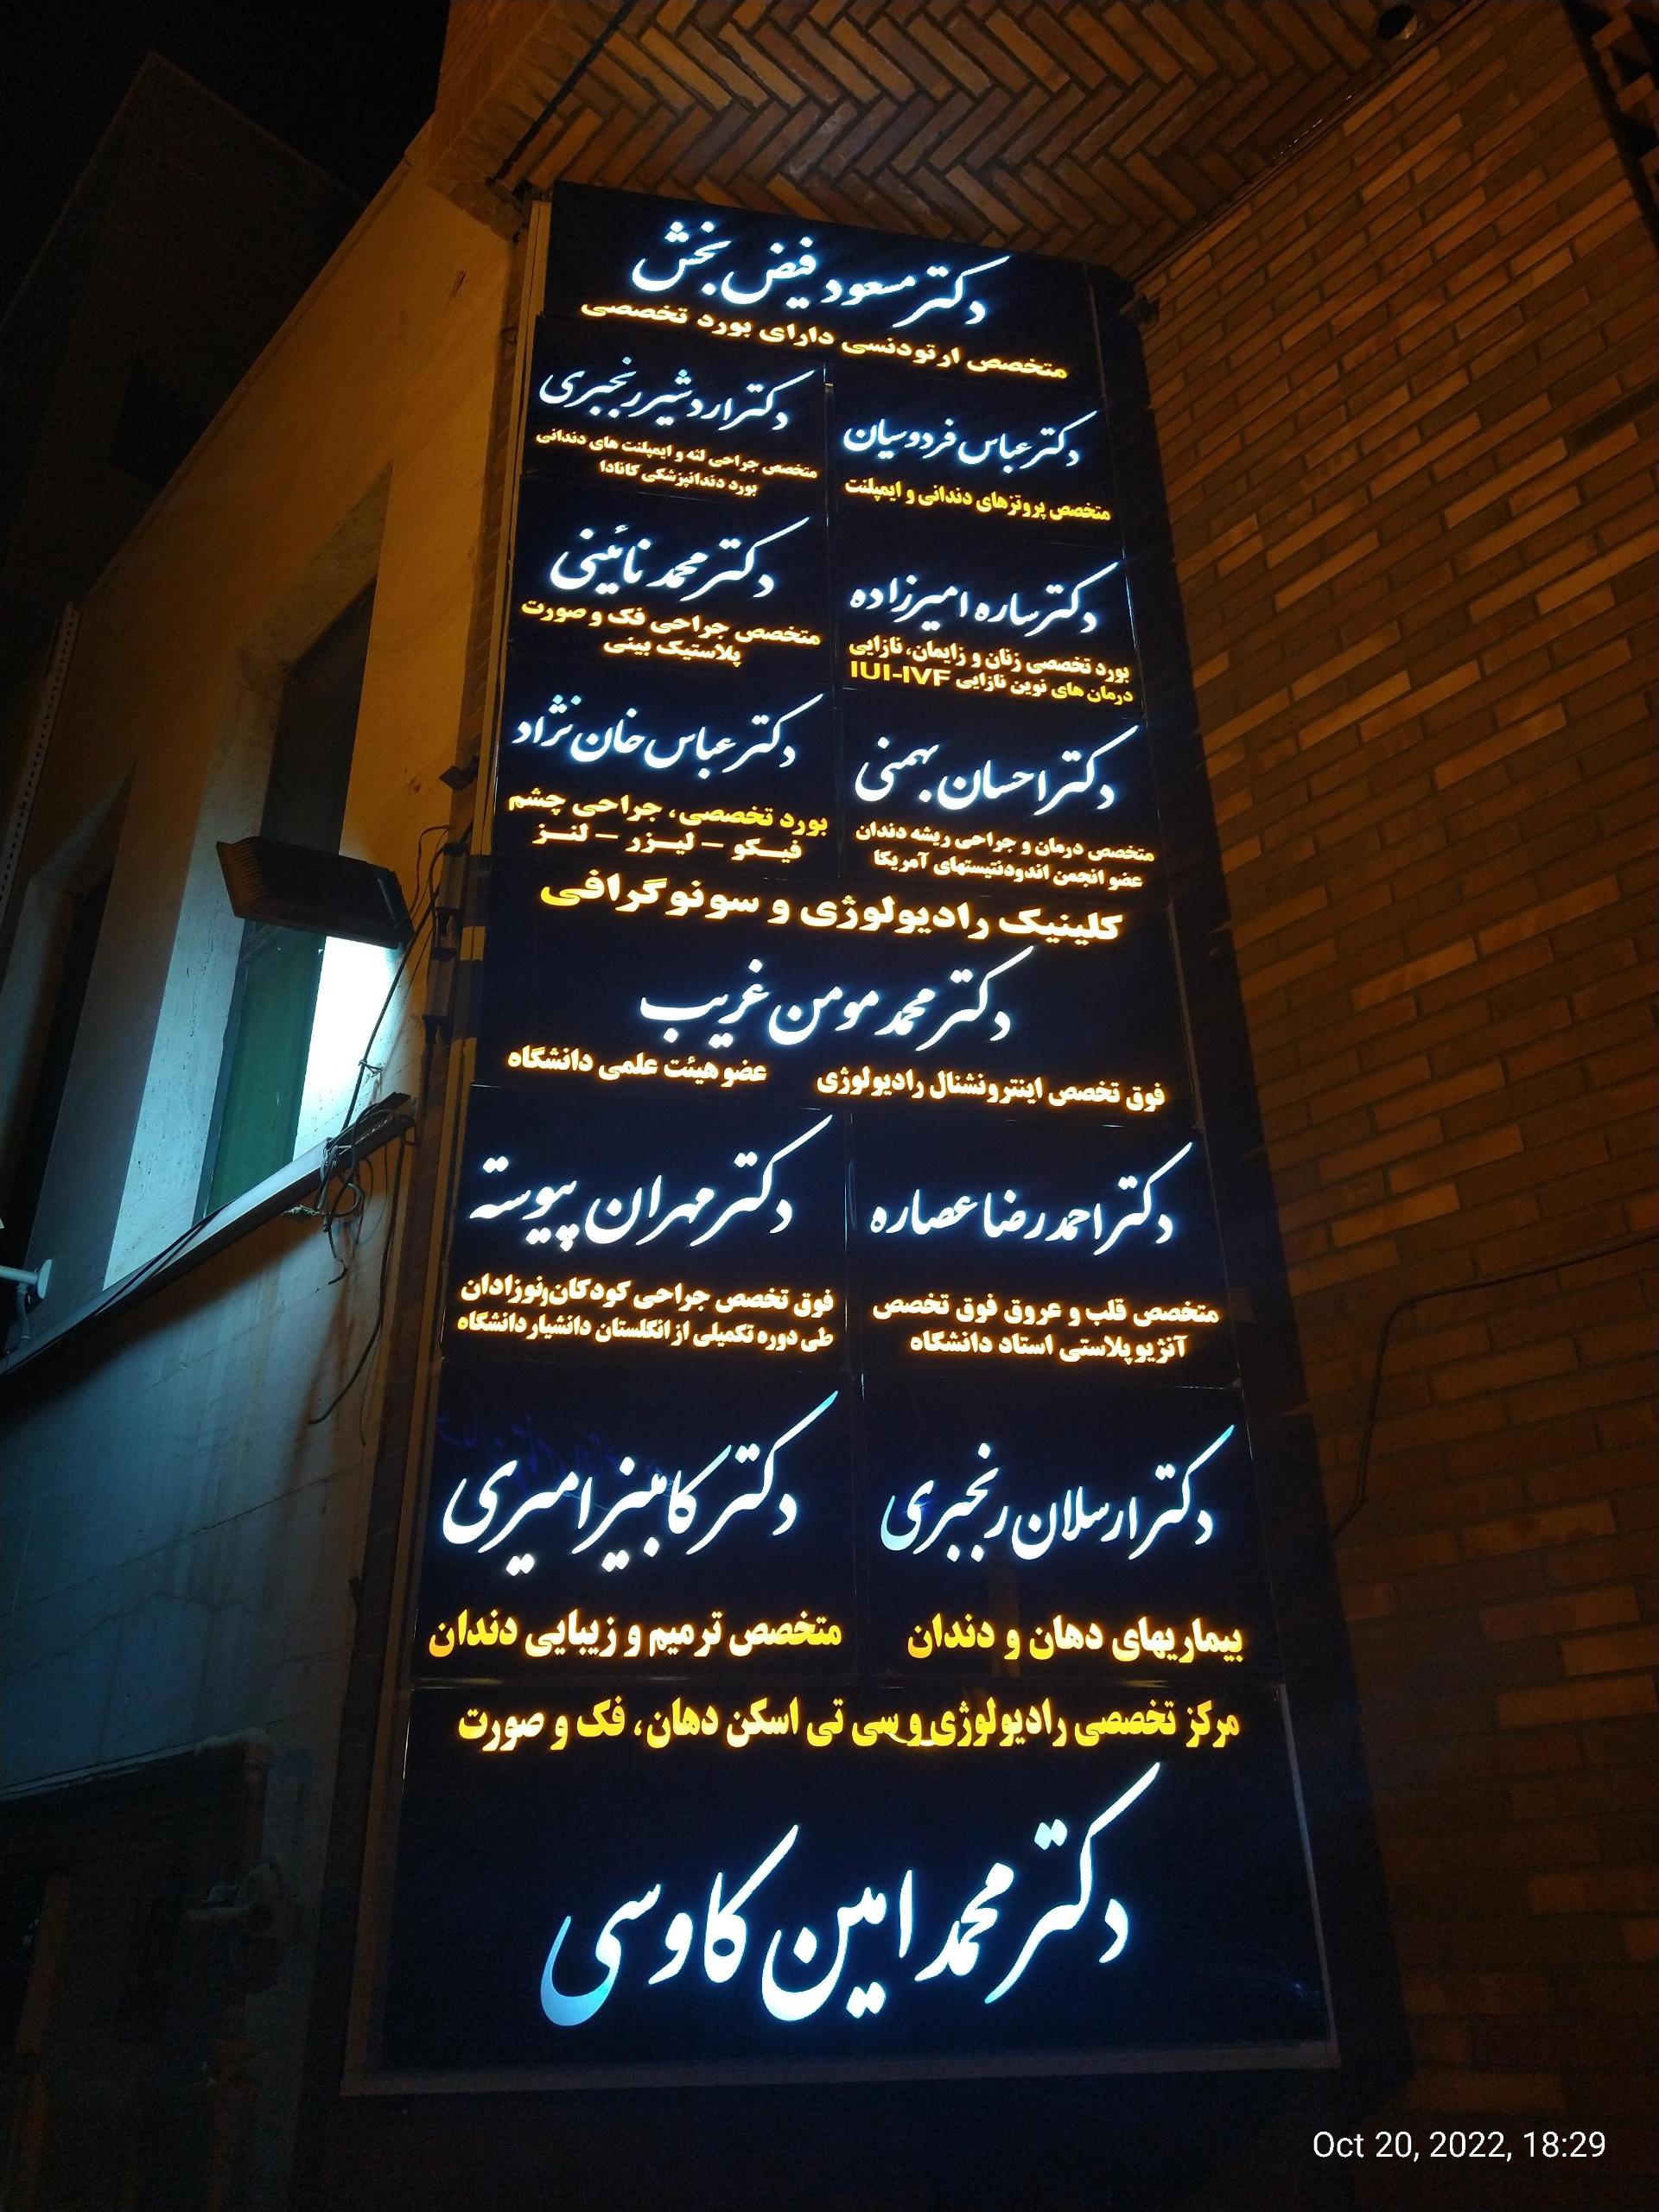 دکتر مسعود فیض بخش
متخصص ارتودنسی دارای بورد تخصصی
دکتر عباس فردوسیان
متخصص پروتزهای دندانی و ایمپلنت
دکتر اردشیر رنجبری
متخصص جراحی لثه و ایمپلنت های دندانی
بورد دندانپزشکی کانادا
دکتر ساره امیرزاده
بورد تخصصی زنان و زایمان، نازایی
درمان های نوین نازایی IUI-IVF
دکتر محمد نائینی
متخصص جراحی فک و صورت
پلاستیک بینی
دکتر احسان بهمنی
متخصص درمان و جراحی ریشه دندان
عضو انجمن اندودنتیستهای آمریکا
دکتر عباس خان نژاد
بورد تخصصی، جراحی چشم
فیکو – لیزر – لنز
کلینیک رادیولوژی و سونوگرافی
دکتر محمد مومن غریب
فوق تخصص اینترونشنال رادیولوژی عضو هیئت علمی دانشگاه
دکتر احمدرضا عصاره
متخصص قلب و عروق فوق تخصص
آنژیوپلاستی استاد دانشگاه
دکتر مهران پیوسته
فوق تخصص جراحی کودکان ونوزادان
طی دوره تکمیلی از انگلستان دانشیار دانشگاه
دکتر ارسلان رنجبری
بیماریهای دهان و دندان
دکتر کامبیز امیری
متخصص ترمیم و زیبایی دندان
مرکز تخصصی رادیولوژی و سی تی اسکن دهان، فک و صورت
دکتر محمد امین کاوسی
Oct 20, 2022, 18:29